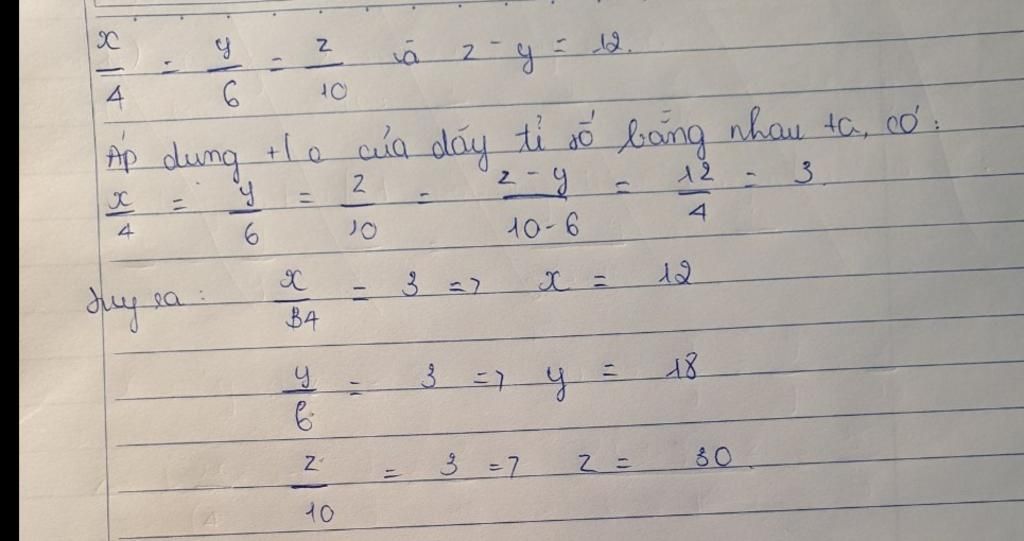 x/4 = y/6 = z/10 và z - y = 12.
Áp dung t/c của dãy tỉ số bằng nhau ta, có:
x/4 = y/6 = z/10 = z - y/10 - 6 = 12/4 = 3.
Suy ra: x/34 = 3 => x = 12
y/6 = 3 => y = 18
z/10 = 3 => z = 30.